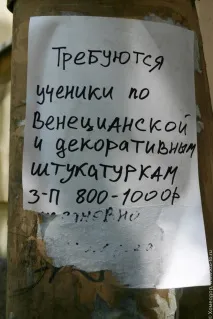 Требуются
ученики по
Венецианской
и декоративным
штукатуркам
З-П 800-1000р